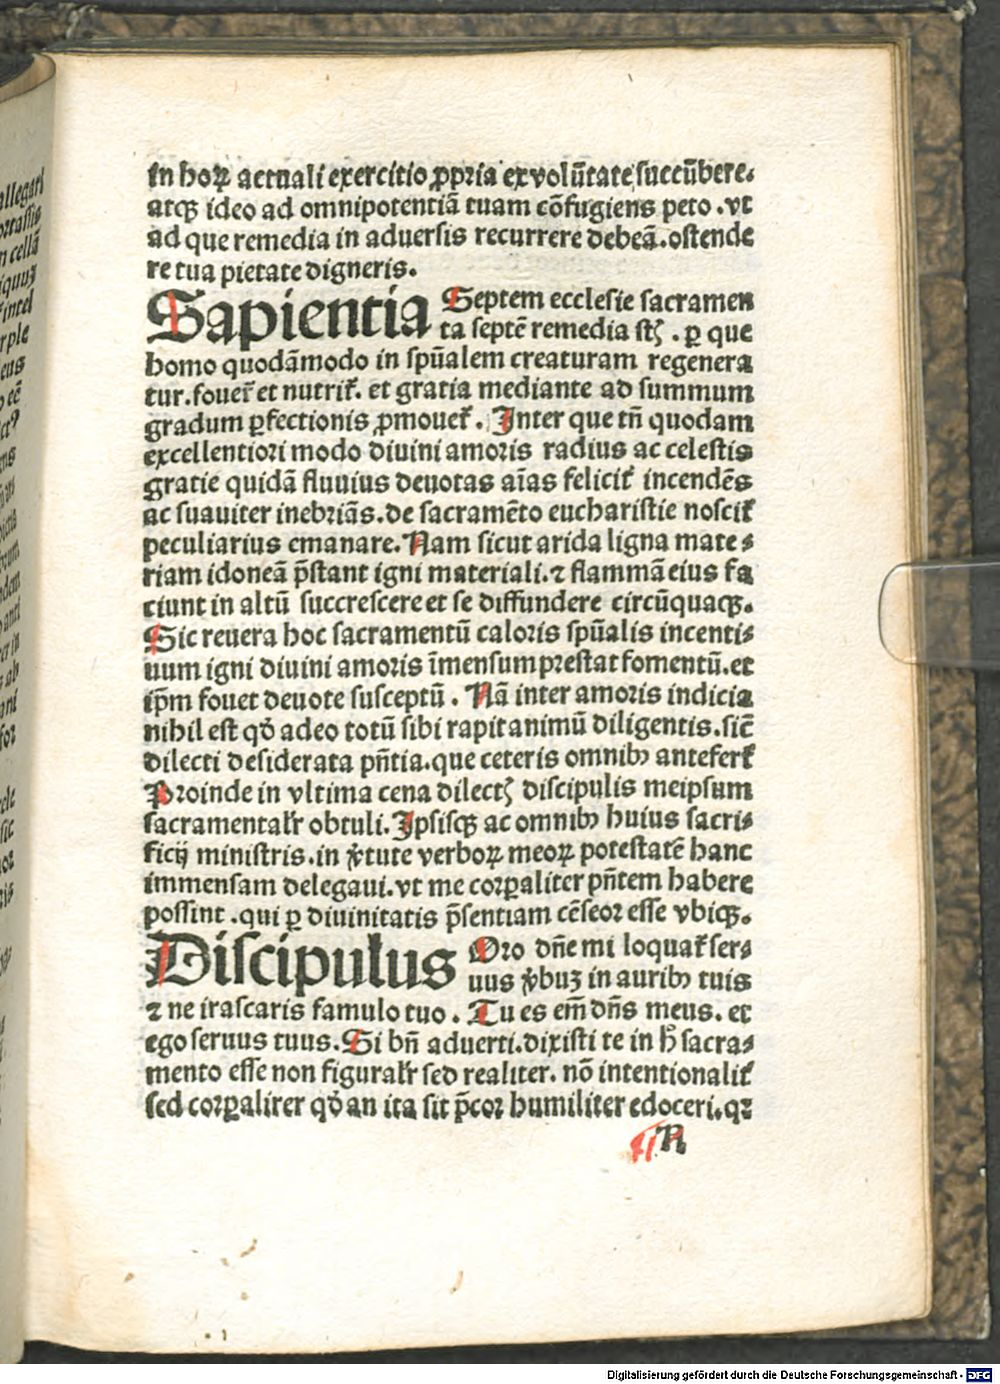 in hoꝝ actuali exercitio ꝓpꝛia ex volūtate ſuccūbere.
atqꝫ ideo ad omnipotentiā tuam cōfugiens peto .vt
ad que remedia in aduerſis recurrere debeā.oſtende
re tua pietate digneris.
Sapientia Septem eccleſie ſacramen
ta ſeptē remedia ſūt . ꝑ que
homo quodāmodo in ſpūalem creaturam regenera
tur.fouet᷑ et nutrit᷑. et gratia mediante ad ſummum
gradum ꝑfectionis ꝓmouet᷑. Inter que tn̄ quodam
excellentioꝛi modo diuini amoꝛis radius ac celeſtis
gratie quidā fluuius deuotas aīas felicit᷑ incendēs
ac ſuauiter inebꝛiās.de ſacramēto euchariſtie noſcit᷑
peculiarius emanare. Nam ſicut arida ligna mate⸗
riam idoneā p̄ſtant igni materiali.⁊ flammā eius fa
ciunt in altū ſuccreſcere et ſe diffundere circūquaqꝫ.
Sic reuera hoc ſacramentū caloꝛis ſpūalis incenti⸗
uum igni diuini amoꝛis īmenſum pꝛeſtat fomentū.et
ip̄m fouet deuote ſuſceptū . Nā inter amoꝛis indicia
nihil eſt qď adeo totū ſibi rapit animū diligentis.ſic̄
dilecti deſiderata pn̄tia.que ceteris omnibꝰ antefert᷑
Pꝛoinde in vltima cena dilectꝭ diſcipulis meipſum
ſacramentalr̄ obtuli. Ipſiſqꝫ ac omnibꝰ huius ſacri⸗
ficij miniſtris.in v̓tute verboꝝ meoꝝ poteſtatē hanc
immenſam delegaui.vt me coꝛꝑaliter pn̄tem habere
poſſint .qui ꝑ diuinitatis p̄ſentiam cēſeoꝛ eſſe vbiqꝫ.
Diſcipulus Oꝛo dn̄e mi loquat᷑ ſer⸗
uus v̓buꝫ in auribꝰ tuis
⁊ ne iraſcaris famulo tuo . Tu es em̄ dn̄s meus. et
ego ſeruus tuus. Si bn̄ aduerti.dixiſti te in h̄ ſacra⸗
mento eſſe non figuralr̄ ſed realiter. nō intentionalit᷑
ſed coꝛꝑalirer qď an ita ſit p̄coꝛ humiliter edoceri.qꝛ
R
Digitalisierung gefördert durch die Deutsche Forschungsgemeinschaft - DFG